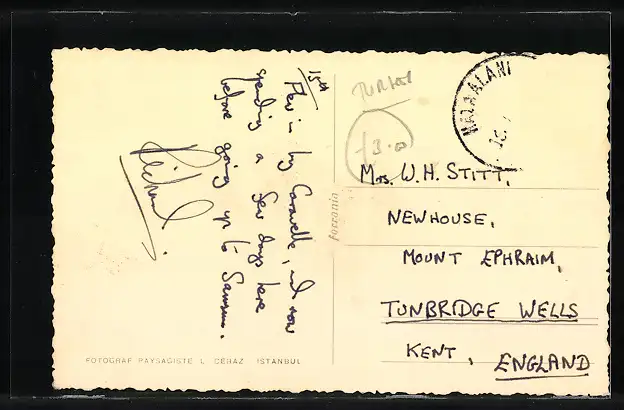 15th
Flew in by Caravelle, and now
spending a few days here
before going up to Samsun.
Richard.
TURKEY
£3.00
HAVAALANI
Mrs. W. H. STITT,
NEWHOUSE,
MOUNT EPHRAIM,
TUNBRIDGE WELLS
KENT, ENGLAND
ferrania
FOTOGRAF PAYSAGISTE L. CERAZ ISTANBUL